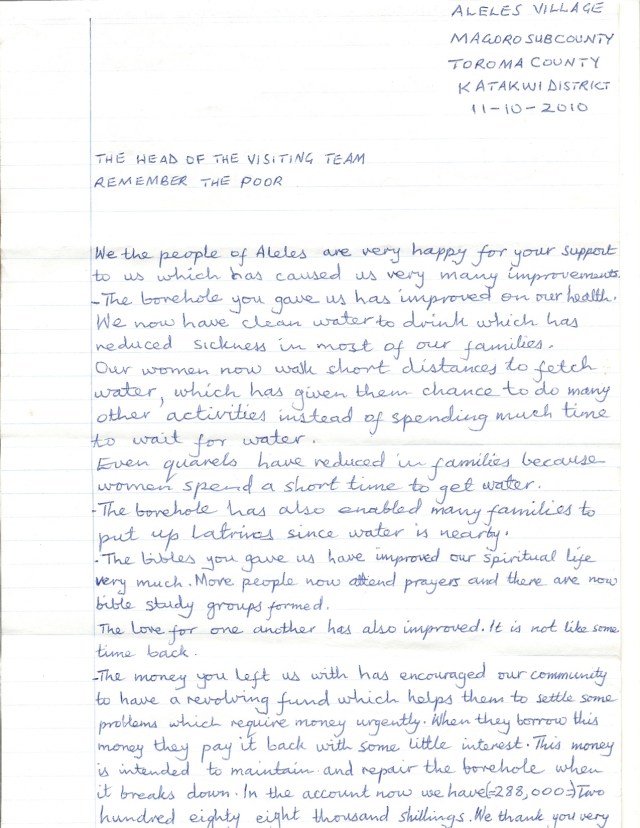 ALELES VILLAGE
MAGORO SUBCOUNTY
TOROMA COUNTY
KATAKWI DISTRICT
11-10-2010
THE HEAD OF THE VISITING TEAM
REMEMBER THE POOR
We the people of Aleles are very happy for your support
to us which has caused us very many improvements.
-The borehole you gave us has improved on our health.
We now have clean water to drink which has
reduced sickness in most of our families.
Our women now walk short distances to fetch
water, which has given them chance to do many
other activities instead of spending much time
to wait for water.
Even quarels have reduced in families because
women spend a short time to get water.
-The borehole has also enabled many families to
put up Latrines since water is nearby.
-The bibles you gave us have improved our spiritual life
very much. More people now attend prayers and there are now
bible study groups formed.
The Love for one another has also improved. It is not like some
time back.
-The money you left us with has encouraged our community
to have a revolving fund which helps them to settle some
problems which require money urgently. When they borrow this
money they pay it back with some little interest. This money
is intended to maintain and repair the borehole when
it breaks down. In the account now we have (=288,000=) Two
hundred eighty eight thousand shillings. We thank you very